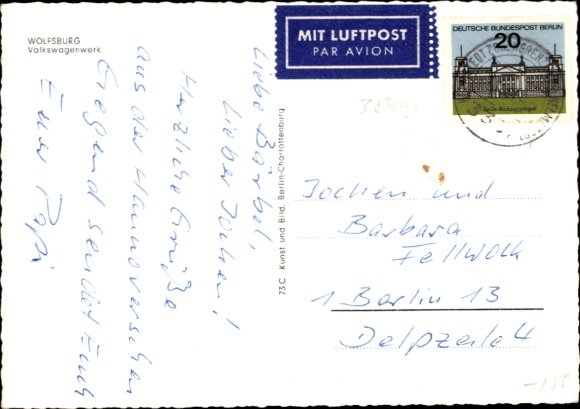 WOLFSBURG
Volkswagenwerk
MIT LUFTPOST
PAR AVION
DEUTSCHE BUNDESPOST BERLIN
20
Liebe Bärbel,
lieber Jochen!
Herzliche Grüße
aus der Hannoverschen
Gegend sendet Euch
Euer Papi
73 C Kunst und Bild, Berlin-Charlottenburg
Jochen und
Barbara
Fellwock
1 Berlin 13
Delpzeile 4